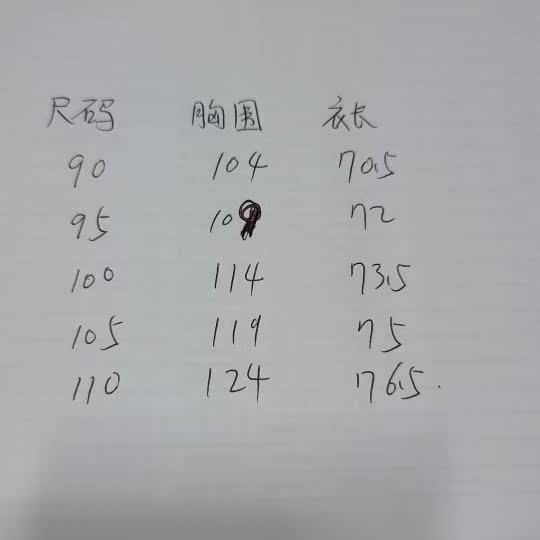 尺码 胸围 衣长
90 104 70.5
95 109 72
100 114 73.5
105 119 75
110 124 76.5